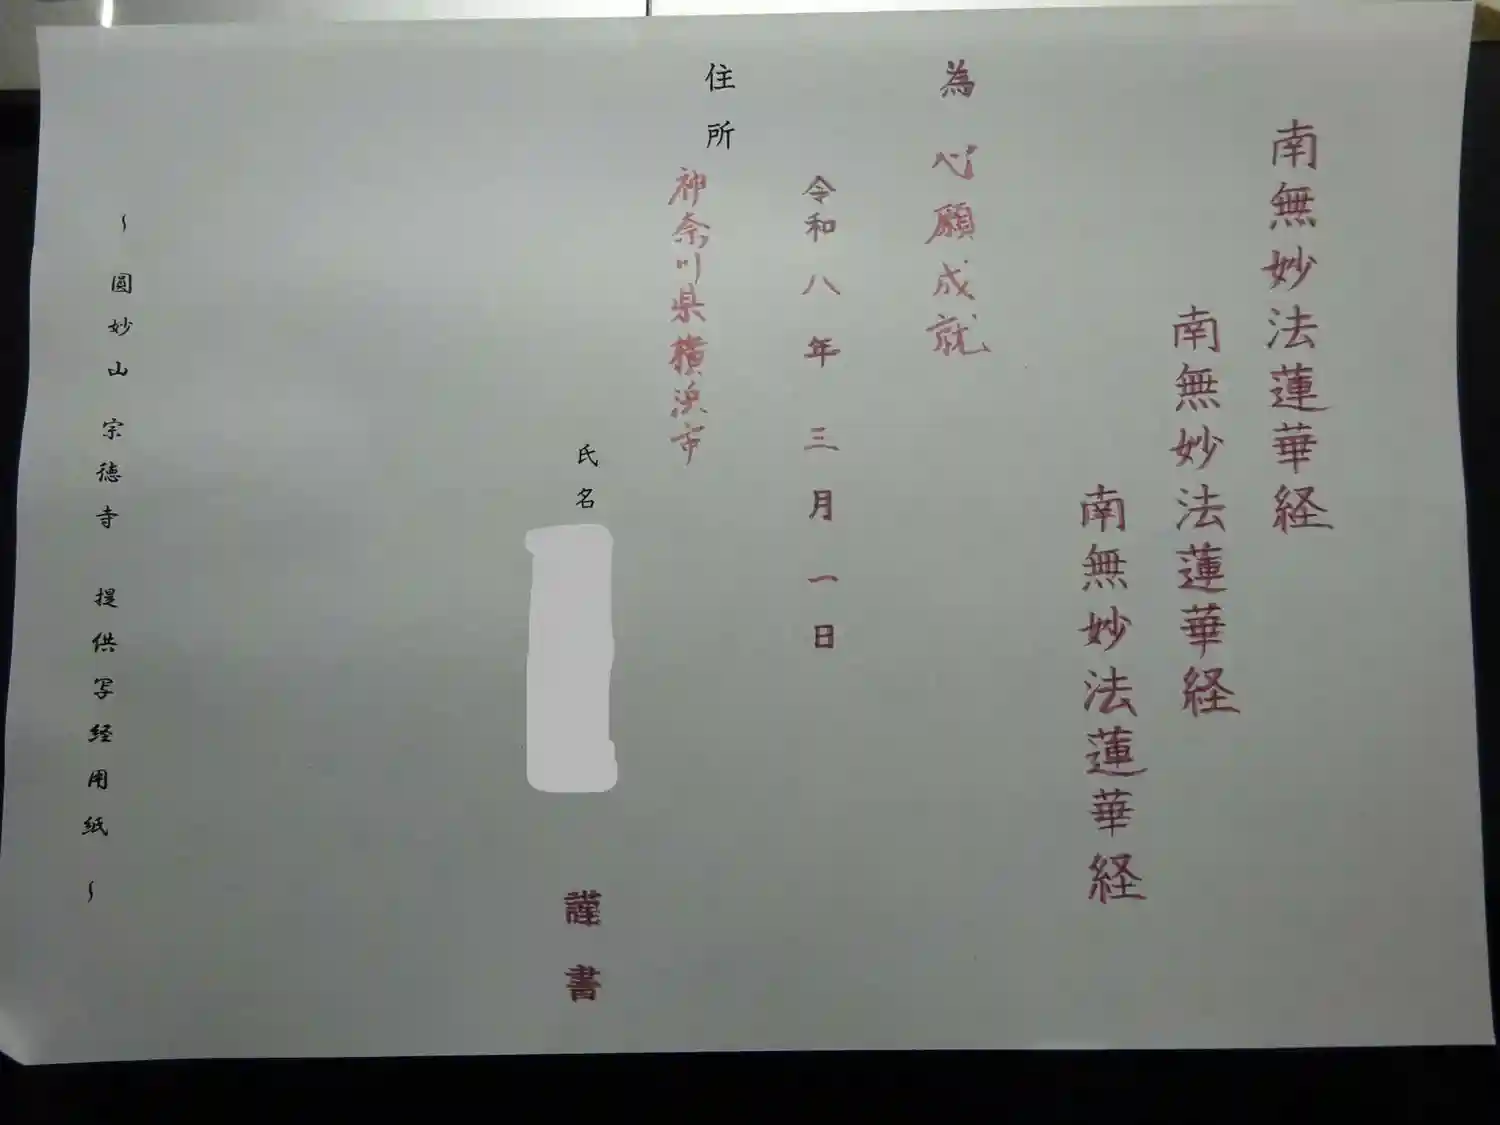 南無妙法蓮華経
南無妙法蓮華経
南無妙法蓮華経
為 心願成就
令和八年三月一日
住所
神奈川県横浜市
氏名
謹書
~圓妙山 宗徳寺 提供写経用紙~